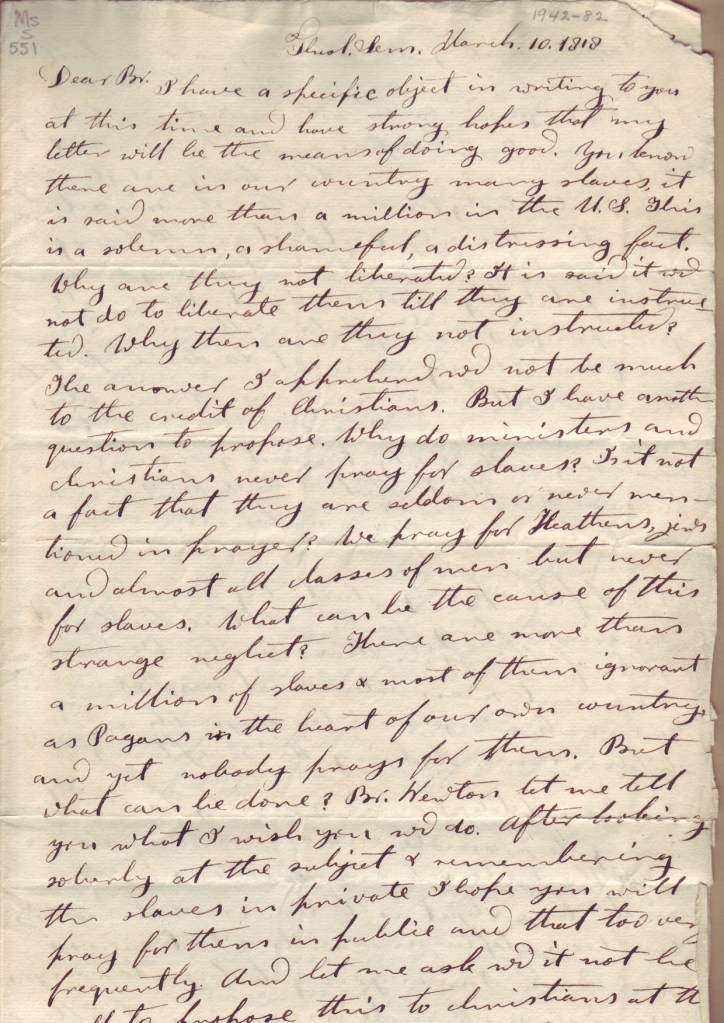 Ms
S
551
1942-82
Theol. Sem. March. 10. 1818
Dear Br. I have a specific object in writing to you
at this time and have strong hopes that my
letter will be the means of doing good. You know
there are in our country many slaves, it
is said more than a million in the U.S. This
is a solemn, a shameful, a distressing fact.
Why are they not liberated? It is said it wd
not do to liberate them till they are instruc-
ted. Why then are they not instructed?
The answer I apprehend wd not be much
to the credit of Christians. But I have another
question to propose. Why do ministers and
christians never pray for slaves? Is it not
a fact that they are seldom or never men-
tioned in prayer? We pray for Heathens, jews
and almost all classes of men but never
for slaves. What can be the cause of this
strange neglect? There are more than
a million of slaves & most of them ignorant
as Pagans in the heart of our own country,
and yet nobody prays for them. But
what can be done? Br. Newton let me tell
you what I wish you wd do. After looking
soberly at the subject & remembering
the slaves in private I hope you will
pray for them in public and that too very
frequently. And let me ask wd it not be
to propose this to christians at